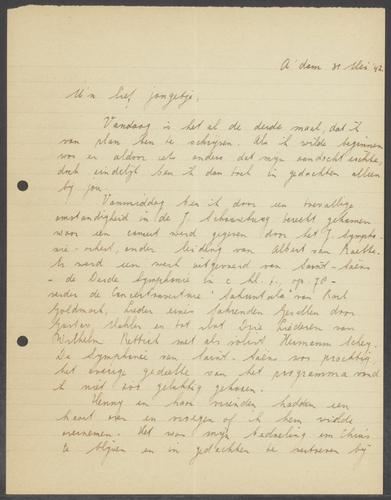 A'dam 31 Mei '42.
M'n lief jongetje,
Vandaag is het al de derde maal, dat ik
van plan ben te schrijven. Als ik wilde beginnen
was er aldoor iets anders dat mijn aandacht eischte,
doch eindelijk ben ik dan toch in gedachten alleen
bij jou.
Vanmiddag ben ik door een toevallige
omstandigheid in de J. Schouwburg terecht gekomen
waar een concert werd gegeven door het J. Sympho-
nie-orkest, onder leiding van Albert van Raalte.
Er werd een werk uitgevoerd van Saint-Saëns
- de Derde Symphonie in c kl. t., op. 78 -
verder de concertouverture "Sakuntala" van Karl
Goldmark, Lieder eines fahrenden Gesellen door
Gustav Mahler en tot slot Drie Liederen van
Wilhelm Rettich met als solist Hermann Schey.
De Symphonie van Saint-Saëns was prachtig
het overige gedeelte van het programma vond
ik niet zoo gelukkig gekozen.
Henny en haar vrienden hadden een
kaart over en vroegen of ik hem wilde
overnemen. Het was mijn bedoeling om thuis
te blijven en in gedachten te vertoeven bij